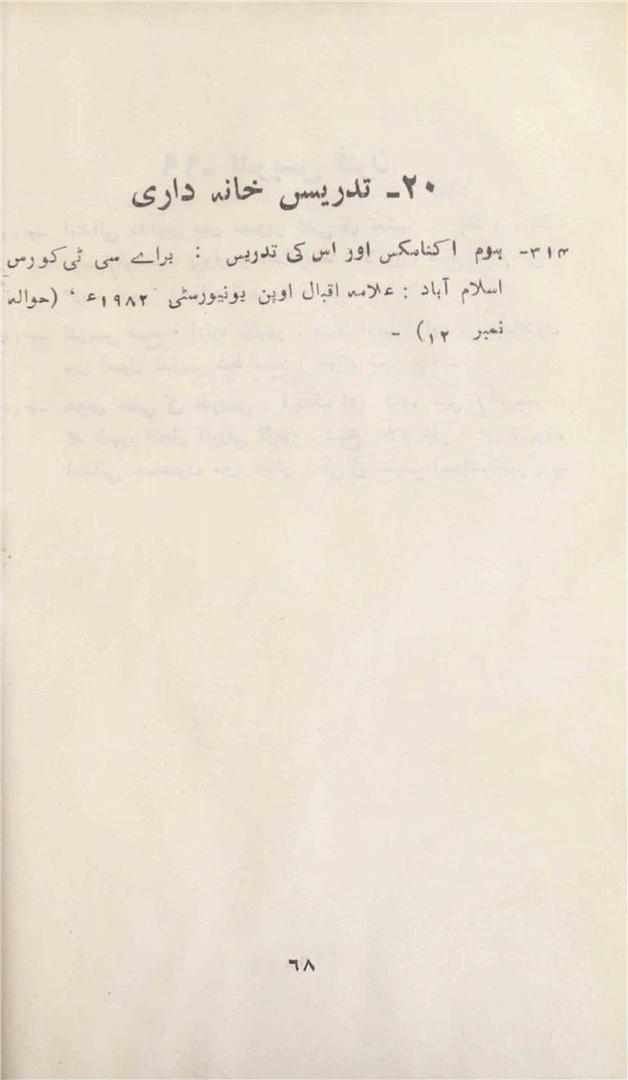 ۲۰۔ تدریس خانہ داری
۳۱۴۔ ہوم اکنامکس اور اس کی تدریس : براے سی ٹی کورس
اسلام آباد : علامہ اقبال اوپن یونیورسٹی ۱۹۸۲ء ، (حوالہ
نمبر ۱۲) ۔
۶۸